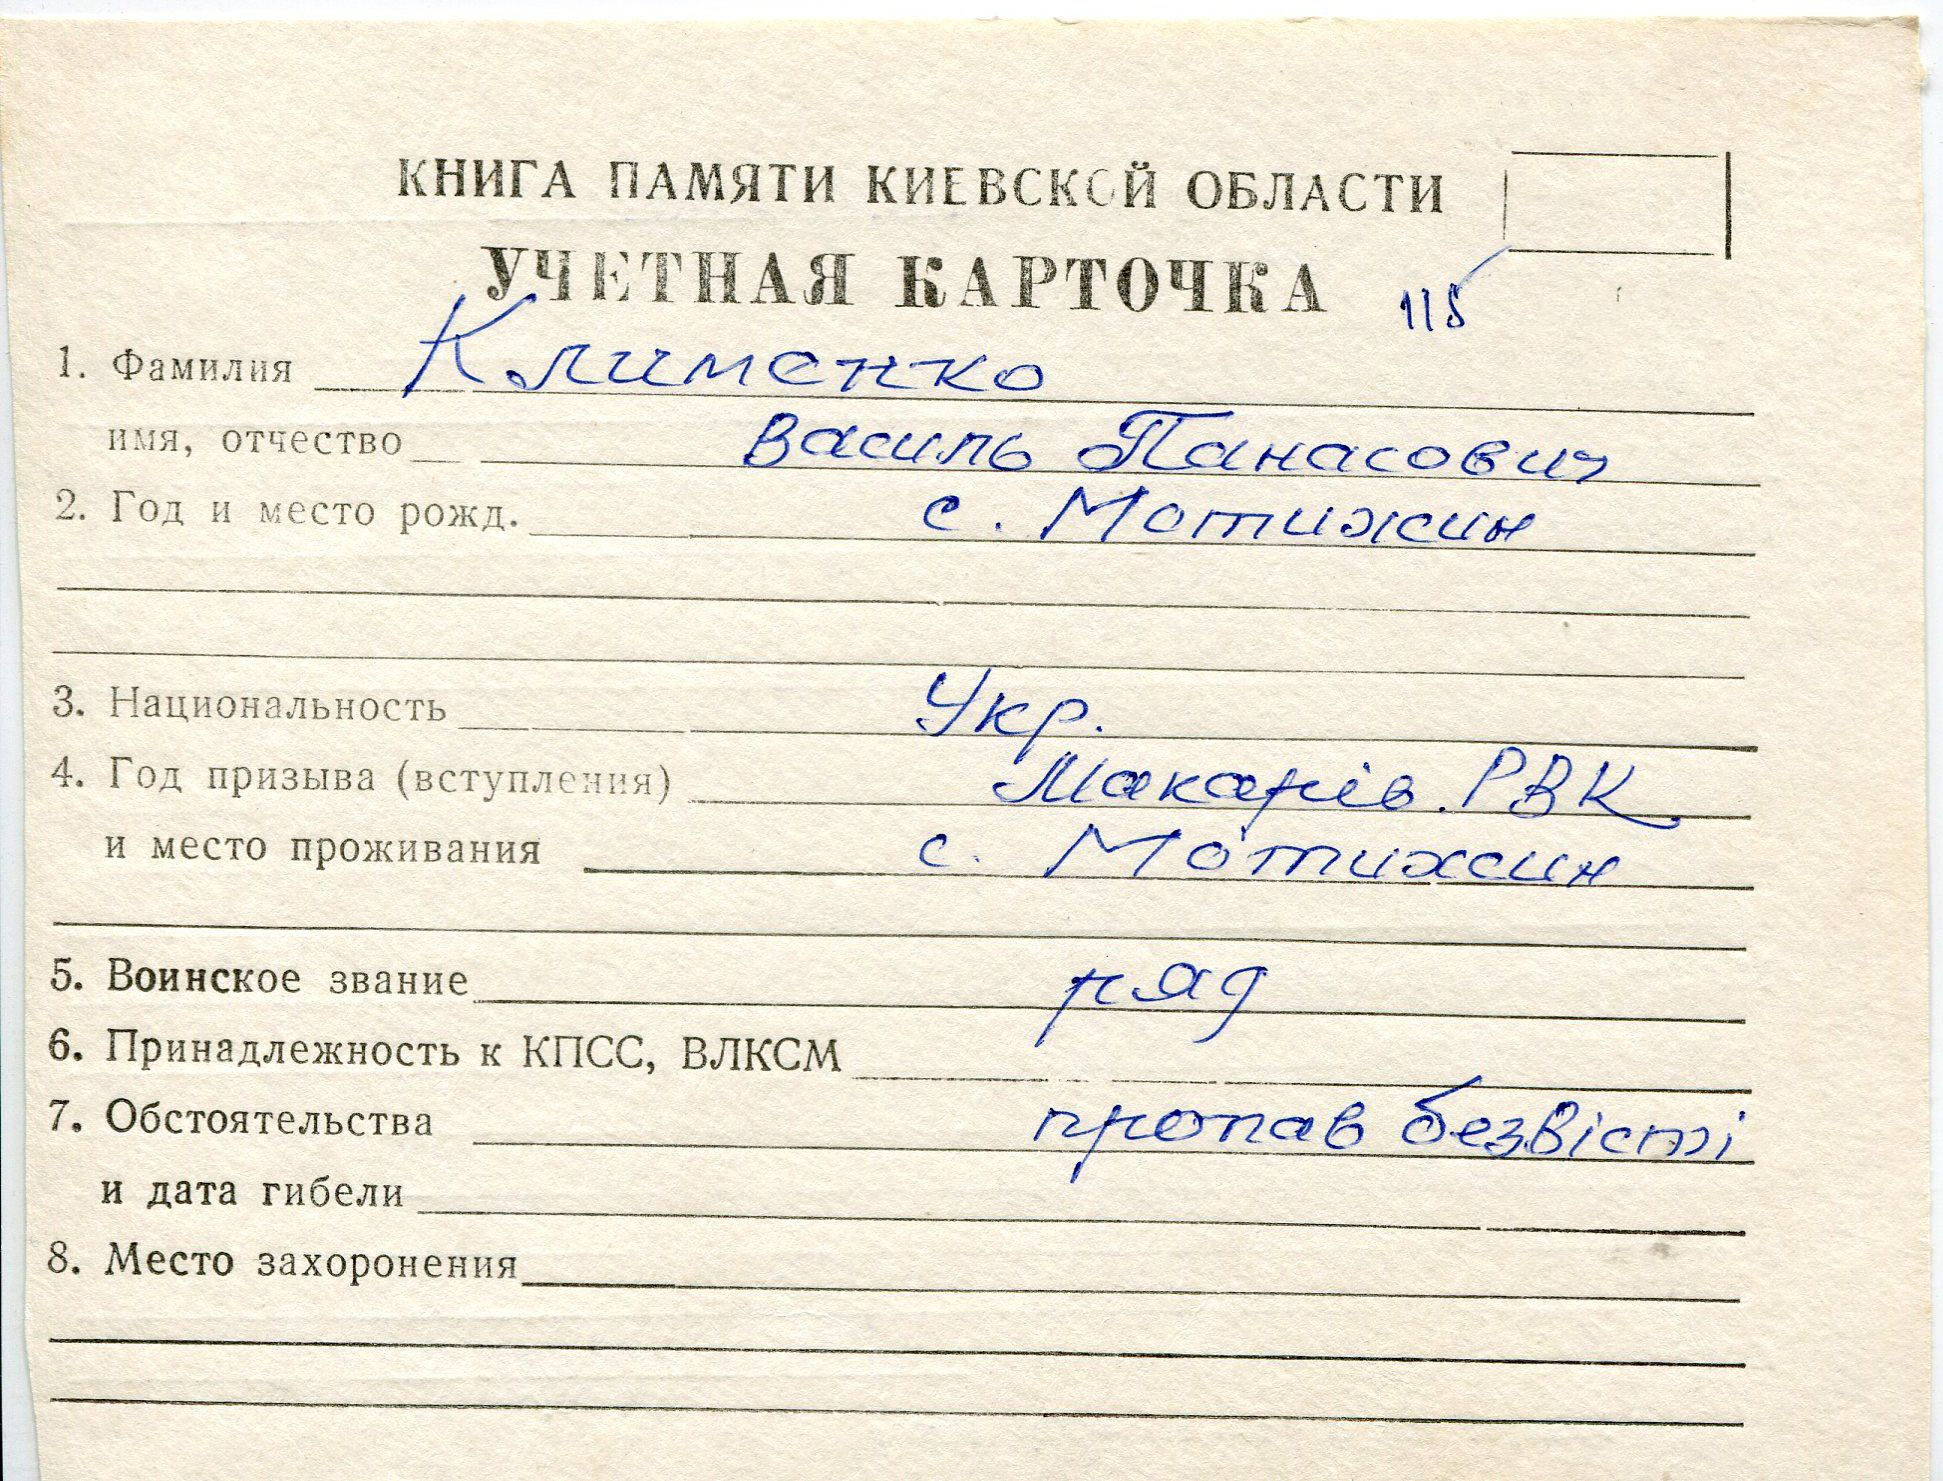 КНИГА ПАМЯТИ КИЕВСКОЙ ОБЛАСТИ
УЧЕТНАЯ КАРТОЧКА 115
1. Фамилия Клименко
имя, отчество Василь Панасович
2. Год и место рожд. с. Мотижин
3. Национальность Укр.
4. Год призыва (вступления) Макарів. РВК
и место проживания с. Мотижин
5. Воинское звание ряд
6. Принадлежность к КПСС, ВЛКСМ
7. Обстоятельства пропав безвісті
и дата гибели
8. Место захоронения